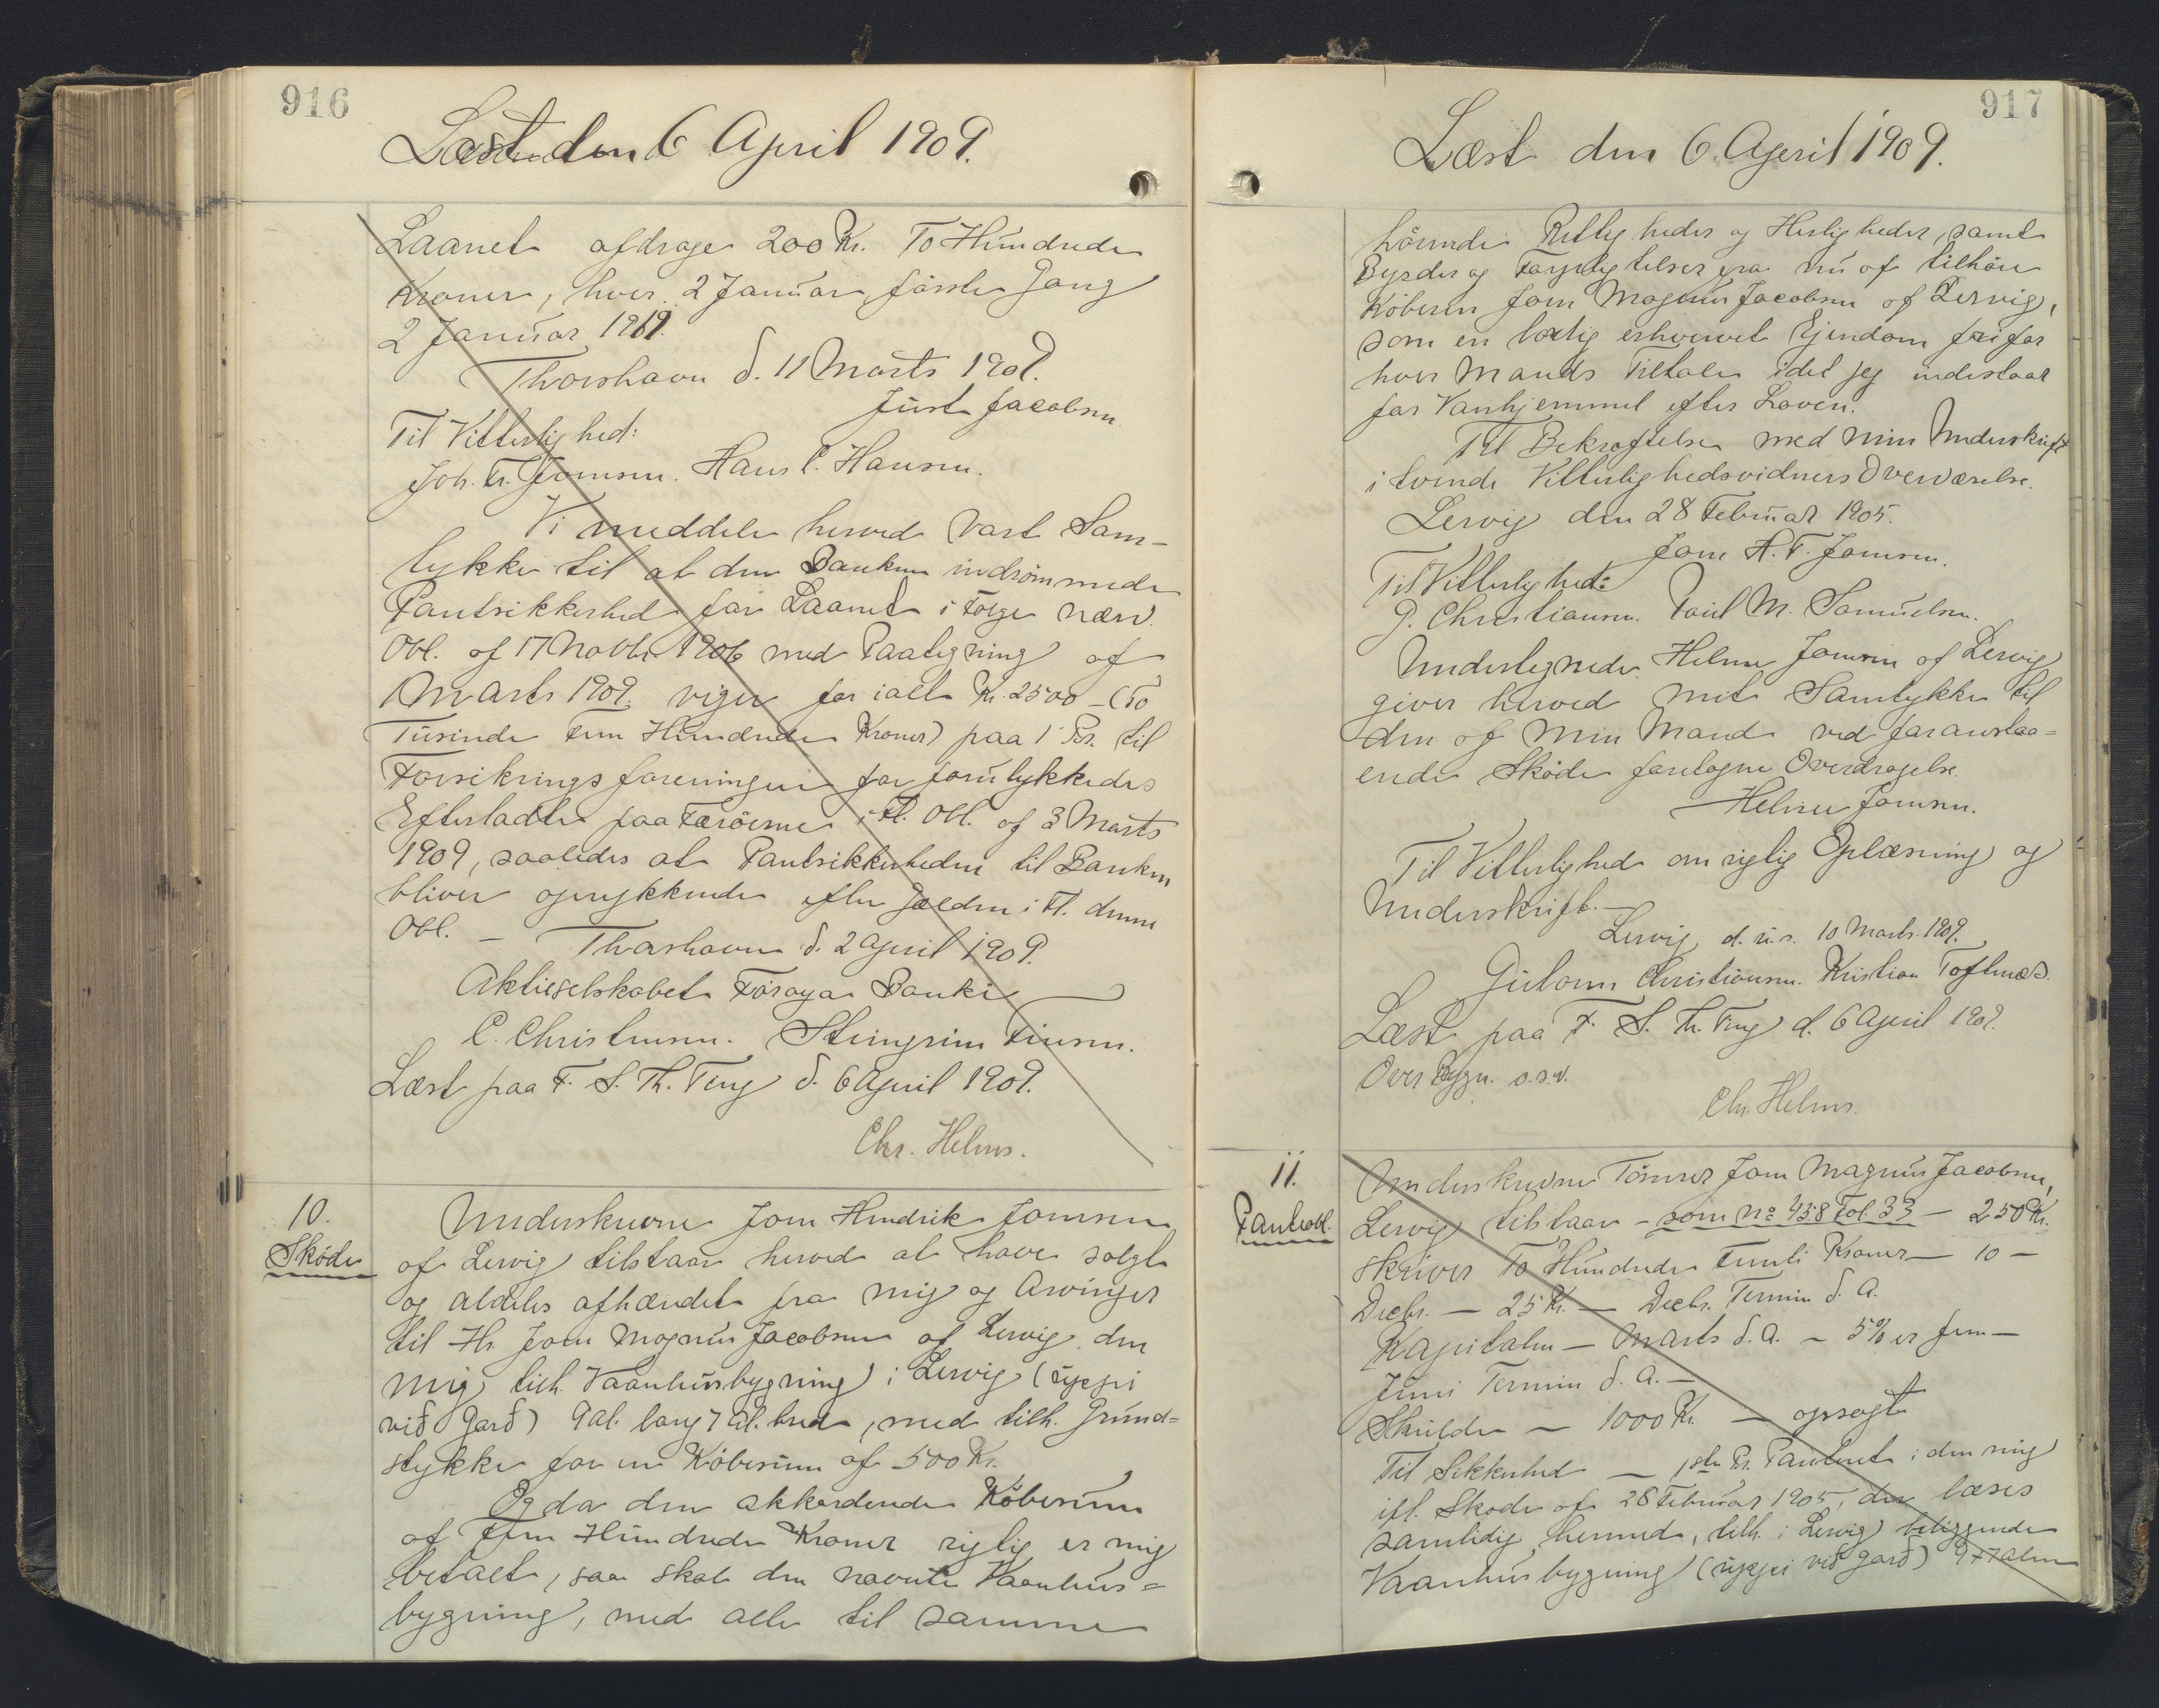 916
Læst den 6 April 1909.
Laanet afdrage 200 Kr. To Hundrede
Kroner, hver 2 Januar, förste Gang
2 Januar 1919.
Thorshavn d. 11 Marts 1909.
Just Jacobsen.
Til Vitterlighed:
Joh. Fr. Joensen. Hans C. Hansen.
Vi meddele herved vort Sam-
tykke til at den Banken indrömmede
Pantsikkerhed for Laanet i Følge nærv.
Obl. af 17 Novbr. 1906 med Paategning af
1 Marts 1909, viger for ialt Kr. 2500 - (To
Tusinde Fem Hundrede Kroner) paa 1 Pr. til
Forsikringsforeningen for forulykkedes
Efterladte paa Færöerne i fl. Obl. af 3 Marts
1909, saaledes at Pantsikkerheden til Banken
bliver oprykkende efter Gælden i fl. denne
Obl. - Thorshavn d. 2 April 1909.
Aktieselskabet Föroya Banki
C. Christensen. Steingrim Finsen.
Læst paa F. S. Th. Ting d. 6 April 1909.
Chr. Helms.
10.
Sköde
Underskrevne Joen Hendrik Joensen
af Lervig tilstaar herved at have solgt
og aldeles afhændet fra mig og Arvinger
til Hr. Joen Magnus Jacobsen af Lervig den
mig tilh. Vaanhusbygning i Lervig (uppi
við Garð) 9 al. lang 7 al. bred, med tilh. Grund=
stykke for en Köbesum af 500 Kr.
Og da den akkorderede Köbesum
af Fem Hundrede Kroner rigtig er mig
betalt, saa skal den nævnte Vaanhus=
bygning, med alle til samme
917
Læst den 6 April 1909.
hörende Rettigheder og Herligheder, samt
Byrder og Forpligtelser fra nu af tilhöre
Köberen Joen Magnus Jacobsen af Lervig,
som en lovlig erhvervet Ejendom fri for
hver Mands Tiltale idet jeg indestaar
for Vanhjemmel efter Loven.
Til Bekræftelse med min Underskrift
i tvende Vitterlighedsvidners Overværelse.
Lervig den 28 Februar 1905.
Joen H. F. Joensen.
Til Vitterlighed:
G. Christiansen. Poul M. Samuelsen.
Undertegnede Helene Joensen af Lervig
giver herved mit Samtykke til
den af min Mand ved foranstaa=
ende Sköde foretagne Overdragelse.
Helene Joensen.
Til Vitterlighed om rigtig Oplæsning og
Underskrift.-
Lervig d. u. s. 10 Marts 1909.
Gutorm Christiansen. Kristian Toftenæs.
Læst paa F. S. Th. Ting d. 6 April 1909.
Over Bygn. o.s.v.
Chr. Helms.
11.
Pantobl.
Underskrevne Tömrer Joen Magnus Jacobsen,
Lervig tilstaar - som No 438 Fol. 33 - 250 Kr.
skriver To Hundrede Femti Kroner - 10 -
Decbr. - 25 Kr. - Decbr. Termin d. A.
Kapitalen - Marts d. A. - 5% er fem -
Juni Termin d. A. -
Skulde - 1000 Kr. - opsagt
Til Sikkerhed - 1ste Pr. Panteret i den mig
ifl. Skøde af 28 Februar 1905, der læses
samtidig hermed, tilh. i Lervig beliggende
Vaanhusbygning (uppi við Garð) 9 x 7 alen